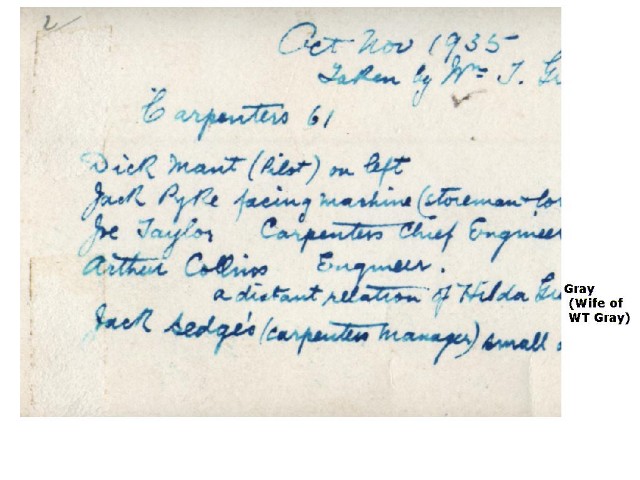 2
Oct Nov 1935
Taken by Wm T. Gr
Carpenters 61
Dick Mant (Pilot) on left
Jack Pyke facing machine (storeman + lor
Joe Taylor Carpenters Chief Engineer
Arthur Collins Engineer.
a distant relation of Hilda Gr
Gray
(Wife of
WT Gray)
Jack Sedge's (carpenters manager) small